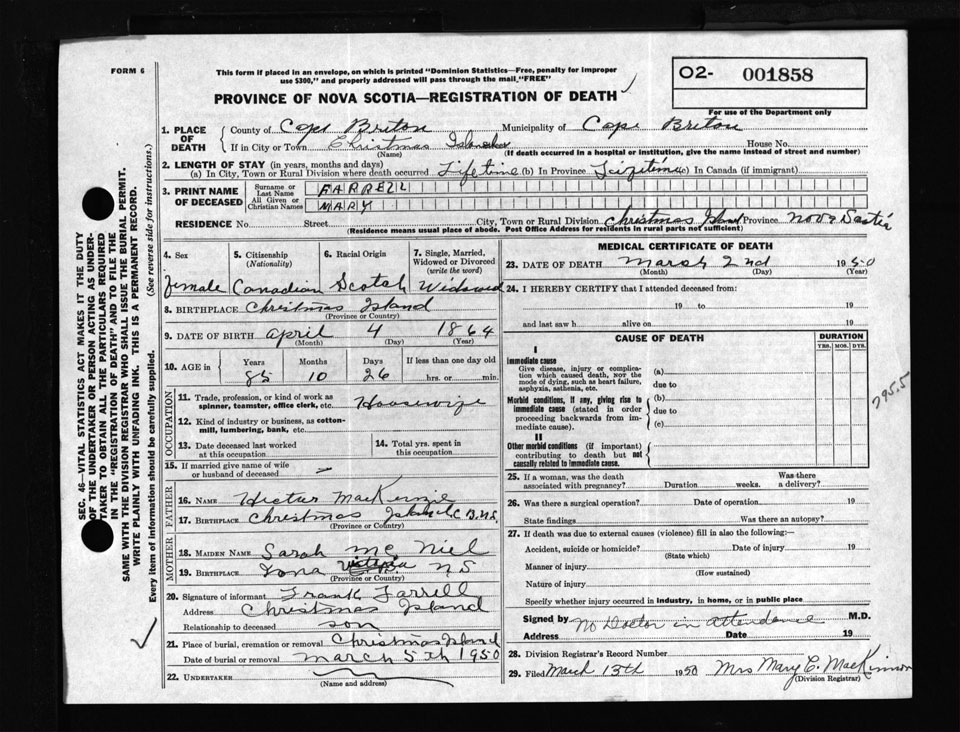 FORM 6
This form if placed in an envelope, on which is printed "Dominion Statistics—Free, penalty for improper
use $300," and properly addressed will pass through the mail "FREE"
PROVINCE OF NOVA SCOTIA—REGISTRATION OF DEATH
O2- 001858
For use of the Department only
1. PLACE OF DEATH
County of Cape Breton Municipality of Cape Breton
If in City or Town Christmas Island House No.
(Name) (If death occurred in a hospital or institution, give the name instead of street and number)
2. LENGTH OF STAY (in years, months and days)
(a) In City, Town or Rural Division where death occurred Lifetime (b) In Province Lifetime (c) In Canada (if immigrant)
3. PRINT NAME OF DECEASED
Surname or Last Name FARRELL
All Given or Christian Names MARY
RESIDENCE No. Street City, Town or Rural Division Christmas Island Province Nova Scotia
(Residence means usual place of abode. Post Office Address for residents in rural parts not sufficient)
4. Sex 5. Citizenship 6. Racial Origin 7. Single, Married,
(Nationality) Widowed or Divorced
(write the word)
Female Canadian Scotch Widowed
8. BIRTHPLACE Christmas Island
(Province or Country)
9. DATE OF BIRTH April 4 1864
(Month) (Day) (Year)
10. AGE in Years Months Days If less than one day old
85 10 26 hrs. or min.
OCCUPATION
11. Trade, profession, or kind of work as
spinner, teamster, office clerk, etc. Housewife
12. Kind of industry or business, as cotton-
mill, lumbering, bank, etc.
13. Date deceased last worked
at this occupation
14. Total yrs. spent in
this occupation
15. If married give name of wife
or husband of deceased
FATHER
16. NAME Hector MacKenzie
17. BIRTHPLACE Christmas Island C.B.N.S.
(Province or Country)
MOTHER
18. MAIDEN NAME Sarah Mc Niel
19. BIRTHPLACE Iona N.S
(Province or Country)
20. Signature of informant Frank Farrell
Address Christmas Island
Relationship to deceased son
21. Place of burial, cremation or removal Christmas Island
Date of burial or removal March 5th 1950
22. UNDERTAKER
(Name and address)
MEDICAL CERTIFICATE OF DEATH
23. DATE OF DEATH March 2nd 1950
(Month) (Day) (Year)
24. I HEREBY CERTIFY that I attended deceased from:
19 to 19
and last saw h alive on 19
CAUSE OF DEATH
DURATION
YRS. MOS. DYS.
I
Immediate cause
Give disease, injury or complica-
tion which caused death, NOT the
mode of dying, such as heart failure,
asphyxia, asthenia, etc.
(a)
due to
Morbid conditions, if any, giving rise to
immediate cause (stated in order
proceeding backwards from im-
mediate cause).
(b)
due to
(c)
II
Other morbid conditions (if important)
contributing to death but not
causally related to immediate cause.
795.5
25. If a woman, was the death
associated with pregnancy? Duration weeks. Was there
a delivery?
26. Was there a surgical operation? Date of operation 19
State findings Was there an autopsy?
27. If death was due to external causes (violence) fill in also the following:
Accident, suicide or homicide? Date of injury 19
(State which)
Manner of injury
(How sustained)
Nature of injury
Specify whether injury occurred in industry, in home, or in public place
Signed by No Doctor in attendance M.D.
Address Date 19
28. Division Registrar's Record Number
29. Filed March 13th 1950 Mrs Mary C. MacKinnon
(Division Registrar)
SEC. 46—VITAL STATISTICS ACT MAKES IT THE DUTY
OF THE UNDERTAKER OR PERSON ACTING AS UNDER-
TAKER TO OBTAIN ALL THE PARTICULARS REQUIRED
IN THE "REGISTRATION OF DEATH" AND TO FILE THE
SAME WITH THE DIVISION REGISTRAR WHO SHALL ISSUE THE BURIAL PERMIT.
WRITE PLAINLY WITH UNFADING INK. THIS IS A PERMANENT RECORD.
Every item of information should be carefully supplied. (See reverse side for instructions.)